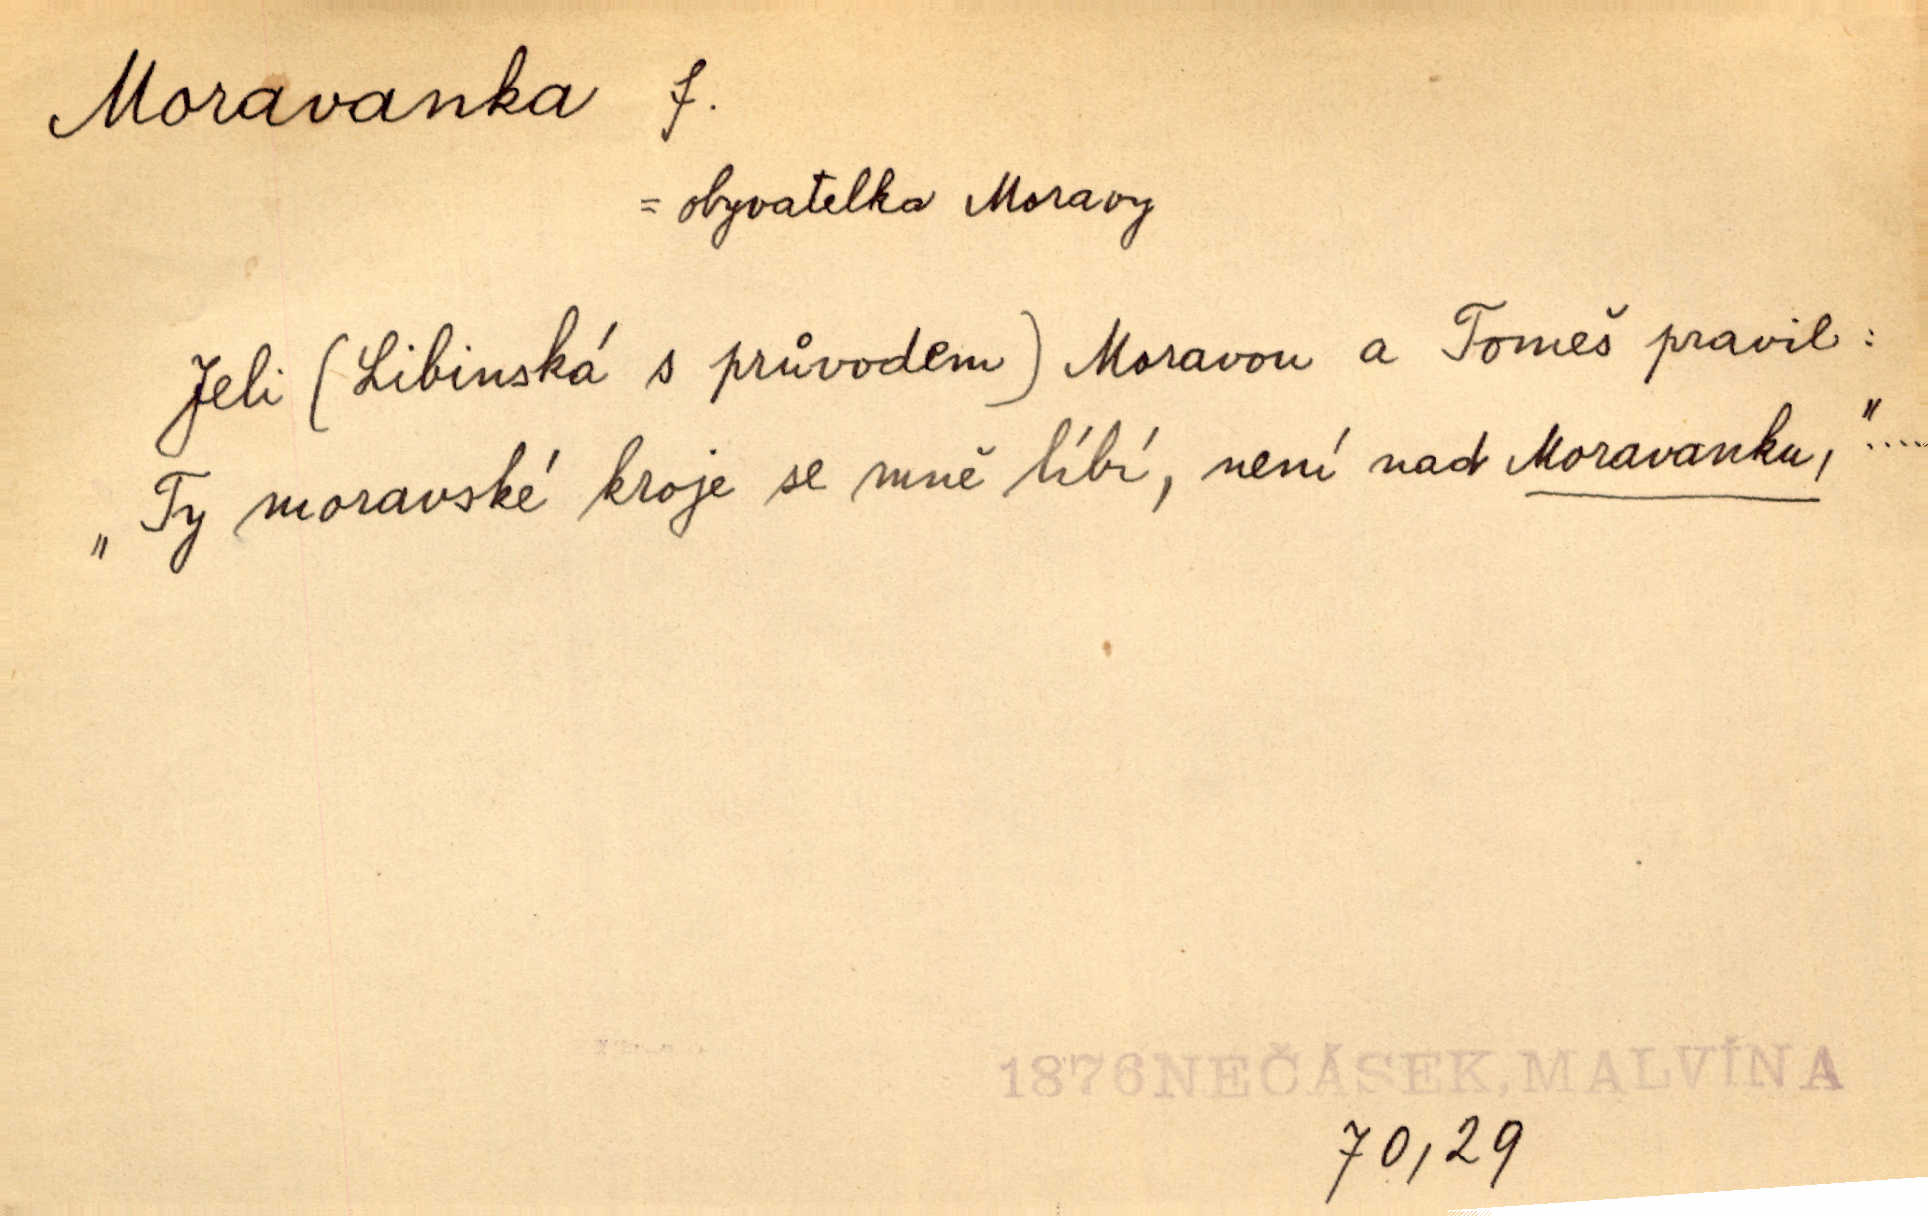 Moravanka f.
= obyvatelka Moravy
Jeli (Libinská s průvodem) Moravou a Tomeš pravil:
„Ty moravské kroje se mně líbí, není nad Moravanku,“.....
1876 NEČÁSEK, MALVÍNA
70,29